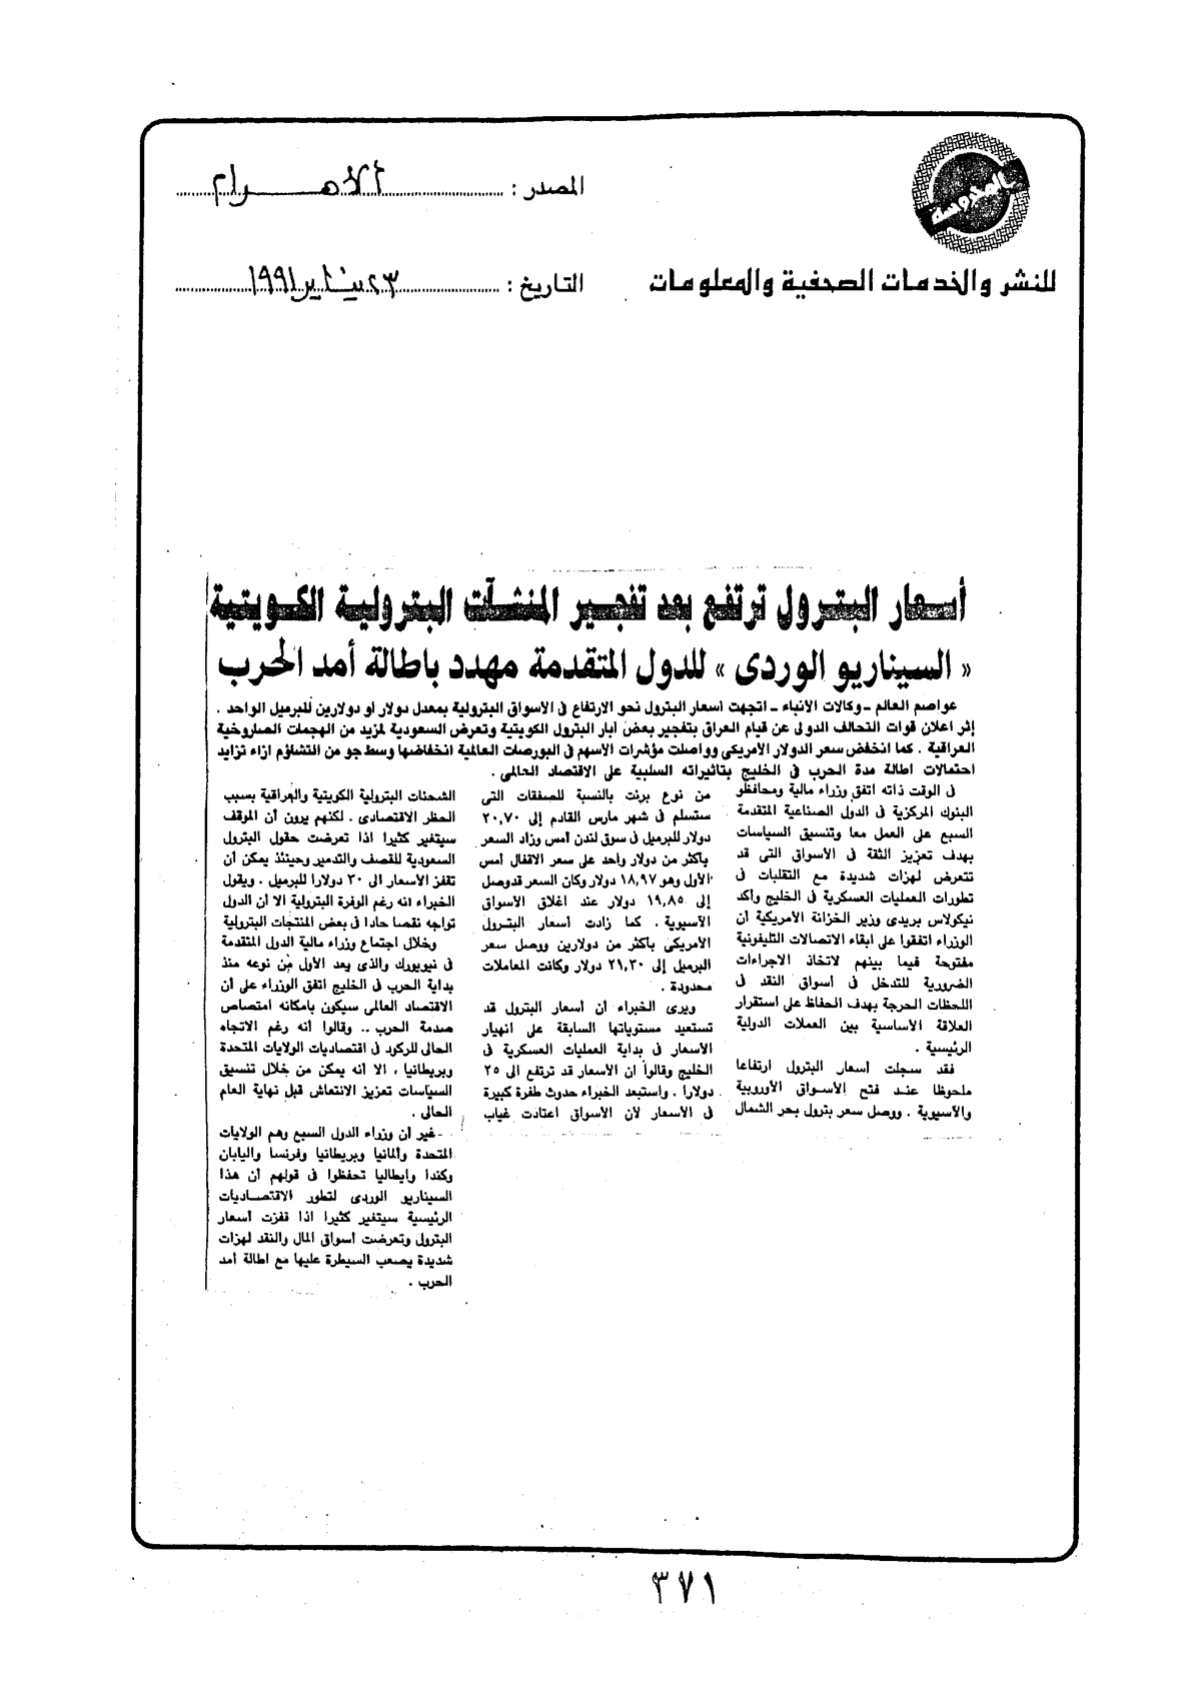 المحروسة
للنشر والخدمات الصحفية والمعلومات
المصدر : الأهرام
التاريخ : ٢٣ يناير ١٩٩١
أسعار البترول ترتفع بعد تفجير المنشآت البترولية الكويتية
« السيناريو الوردى » للدول المتقدمة مهدد باطالة أمد الحرب
عواصم العالم ــ وكالات الانباء ــ اتجهت اسعار البترول نحو الارتفاع فى الاسواق البترولية بمعدل دولار أو دولارين للبرميل الواحد .
إثر اعلان قوات التحالف الدولى عن قيام العراق بتفجير بعض ابار البترول الكويتية وتعرض السعودية لمزيد من الهجمات الصاروخية
العراقية . كما انخفض سعر الدولار الأمريكى وواصلت مؤشرات الأسهم فى البورصات العالمية انخفاضها وسط جو من التشاؤم ازاء تزايد
احتمالات اطالة مدة الحرب فى الخليج بتاثيراته السلبية على الاقتصاد العالمى .
فى الوقت ذاته اتفق وزراء مالية ومحافظو
البنوك المركزية فى الدول الصناعية المتقدمة
السبع على العمل معا وتنسيق السياسات
بهدف تعزيز الثقة فى الأسواق التى قد
تتعرض لهزات شديدة مع التقلبات فى
تطورات العمليات العسكرية فى الخليج وأكد
نيكولاس بريدى وزير الخزانة الأمريكية أن
الوزراء اتفقوا على ابقاء الاتصالات التليفونية
مفتوحة فيما بينهم لاتخاذ الاجراءات
الضرورية للتدخل فى أسواق النقد فى
اللحظات الحرجة بهدف الحفاظ على استقرار
العلاقة الأساسية بين العملات الدولية
الرئيسية .
فقد سجلت أسعار البترول ارتفاعا
ملحوظا عند فتح الأسواق الأوروبية
والأسيوية . ووصل سعر بترول بحر الشمال
من نوع برنت بالنسبة للصفقات التى
ستسلم فى شهر مارس القادم إلى ٢٠,٧٠
دولار للبرميل فى سوق لندن أمس وزاد السعر
بأكثر من دولار واحد على سعر الاقفال أمس
الأول وهو ١٨,٩٧ دولار وكان السعر قد وصل
إلى ١٩,٨٥ دولار عند اغلاق الأسواق
الآسيوية . كما زادت أسعار البترول
الأمريكى بأكثر من دولارين ووصل سعر
البرميل إلى ٢١,٣٠ دولار وكانت المعاملات
محدودة .
ويرى الخبراء أن أسعار البترول قد
تستعيد مستوياتها السابقة على انهيار
الأسعار فى بداية العمليات العسكرية فى
الخليج وقالوا ان الأسعار قد ترتفع الى ٢٥
دولارا . واستبعد الخبراء حدوث طفرة كبيرة
فى الأسعار لأن الأسواق اعتادت غياب
الشحنات البترولية الكويتية والعراقية بسبب
الحظر الاقتصادى . لكنهم يرون أن الموقف
سيتغير كثيرا اذا تعرضت حقول البترول
السعودية للقصف والتدمير وحينئذ يمكن أن
تقفز الأسعار الى ٣٠ دولارا للبرميل . ويقول
الخبراء انه رغم الوفرة البترولية الا أن الدول
تواجه نقصا حادا فى بعض المنتجات البترولية
وخلال اجتماع وزراء مالية الدول المتقدمة
فى نيويورك والذى يعد الأول من نوعه منذ
بداية الحرب فى الخليج اتفق الوزراء على أن
الاقتصاد العالمى سيكون بامكانه امتصاص
صدمة الحرب .. وقالوا أنه رغم الاتجاه
الحالى للركود فى اقتصاديات الولايات المتحدة
وبريطانيا ، الا أنه يمكن من خلال تنسيق
السياسات تعزيز الانتعاش قبل نهاية العام
الحالى .
غير أن وزراء الدول السبع وهم الولايات
المتحدة والمانيا وبريطانيا وفرنسا واليابان
وكندا وايطاليا تحفظوا فى قولهم أن هذا
السيناريو الوردى لتطور الاقتصاديات
الرئيسية سيتغير كثيرا اذا قفزت أسعار
البترول وتعرضت أسواق المال والنقد لهزات
شديدة يصعب السيطرة عليها مع اطالة أمد
الحرب .
٣٧١